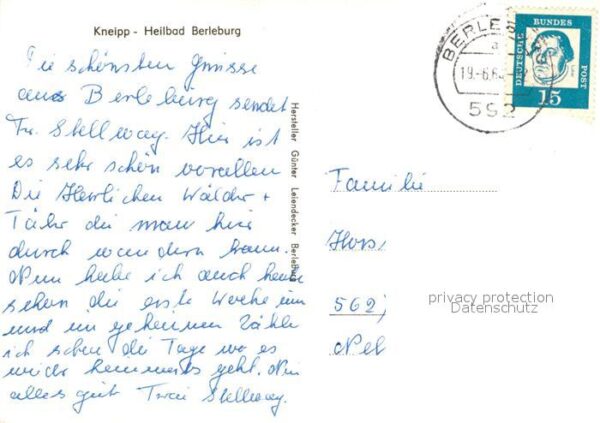 Kneipp - Heilbad Berleburg
Die schönsten Grüsse
aus Berleburg sendet
Fr. Stellway. Hier ist
es sehr schön vorallen
Die Herrlichen Wälder +
Täler die man hier
durch wandern kann.
Nun habe ich auch
schon die erste Woche um
und im geheimen Zähle
ich schon die Tage wo es
wieder heimwärts geht. Nun
alles gute Frau Stellway.
Hersteller Günter Leiendecker Berleburg
BERLE
19.-6.64
592
DEUTSCHE BUNDESPOST
15
Familie
Hors
562
Nel
privacy protection
Datenschutz